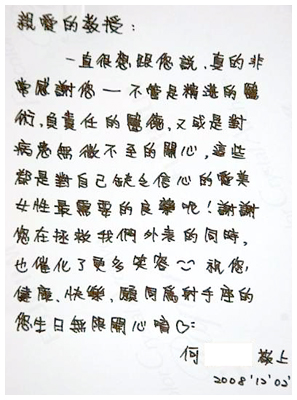 親愛的教授：
一直很想跟您說，真的非
常感謝您——不管是精進的醫
術，負責任的醫德，又或是對
病患無微不至的關心，這些
都是對自己缺乏信心的愛美
女性最需要的良藥呢！謝謝
您在拯救我們外表的同時，
也催化了更多笑容 祝您，
健康、快樂，願同為射手座的
您生日無限開心唷♡
何 敬上
2008'12'02'